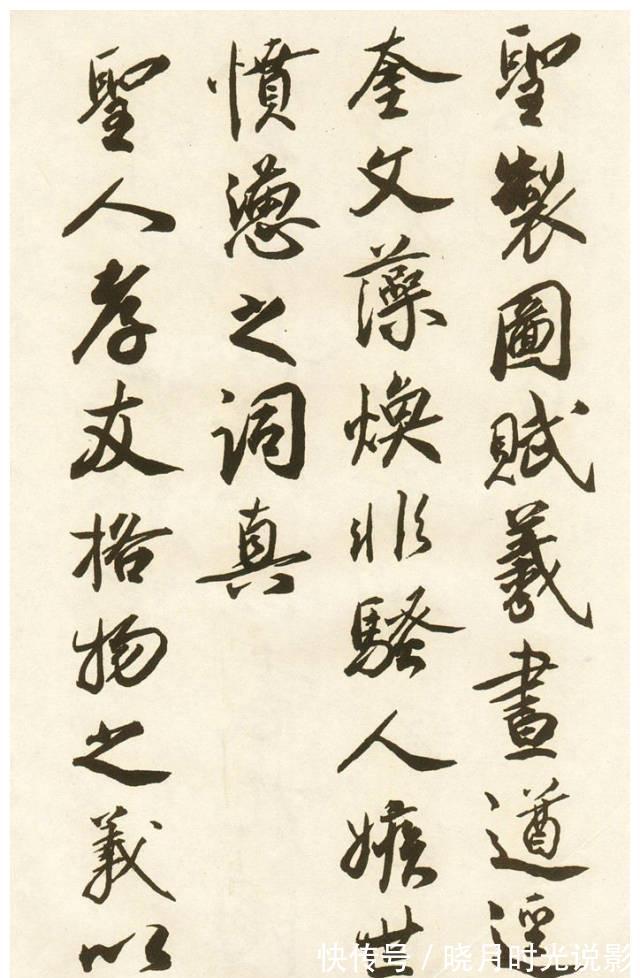 聖製圖賦羲畫遒
奎文藻煥非騷人嫉世
憤懣之詞真
聖人孝友格物之義以
快传号/晓月时光说影